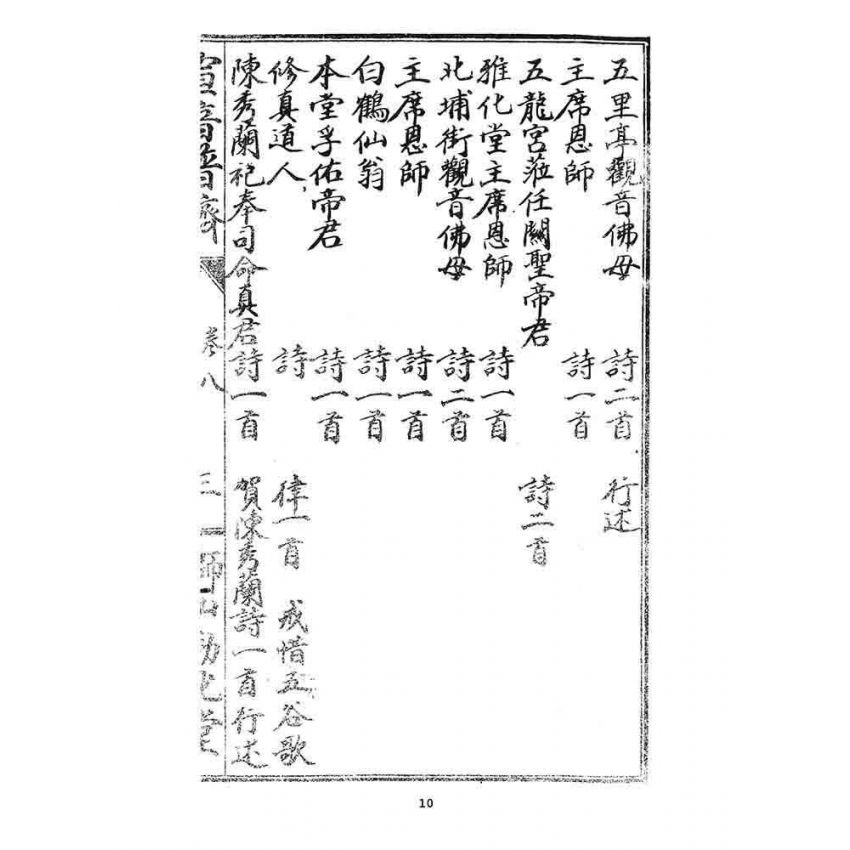 五里亭觀音佛母 詩二首 行述
主席恩師 詩一首
五龍宮蒞任關聖帝君 詩二首
雅化堂主席恩師 詩一首
北埔街觀音佛母 詩二首
主席恩師 詩一首
白鶴仙翁 詩一首
本堂孚佑帝君 詩一首
修真道人 詩 律一首 戒惜五谷歌
陳秀蘭祀奉司命真君詩一首 賀陳秀蘭詩一首 行述
卷八 三
10